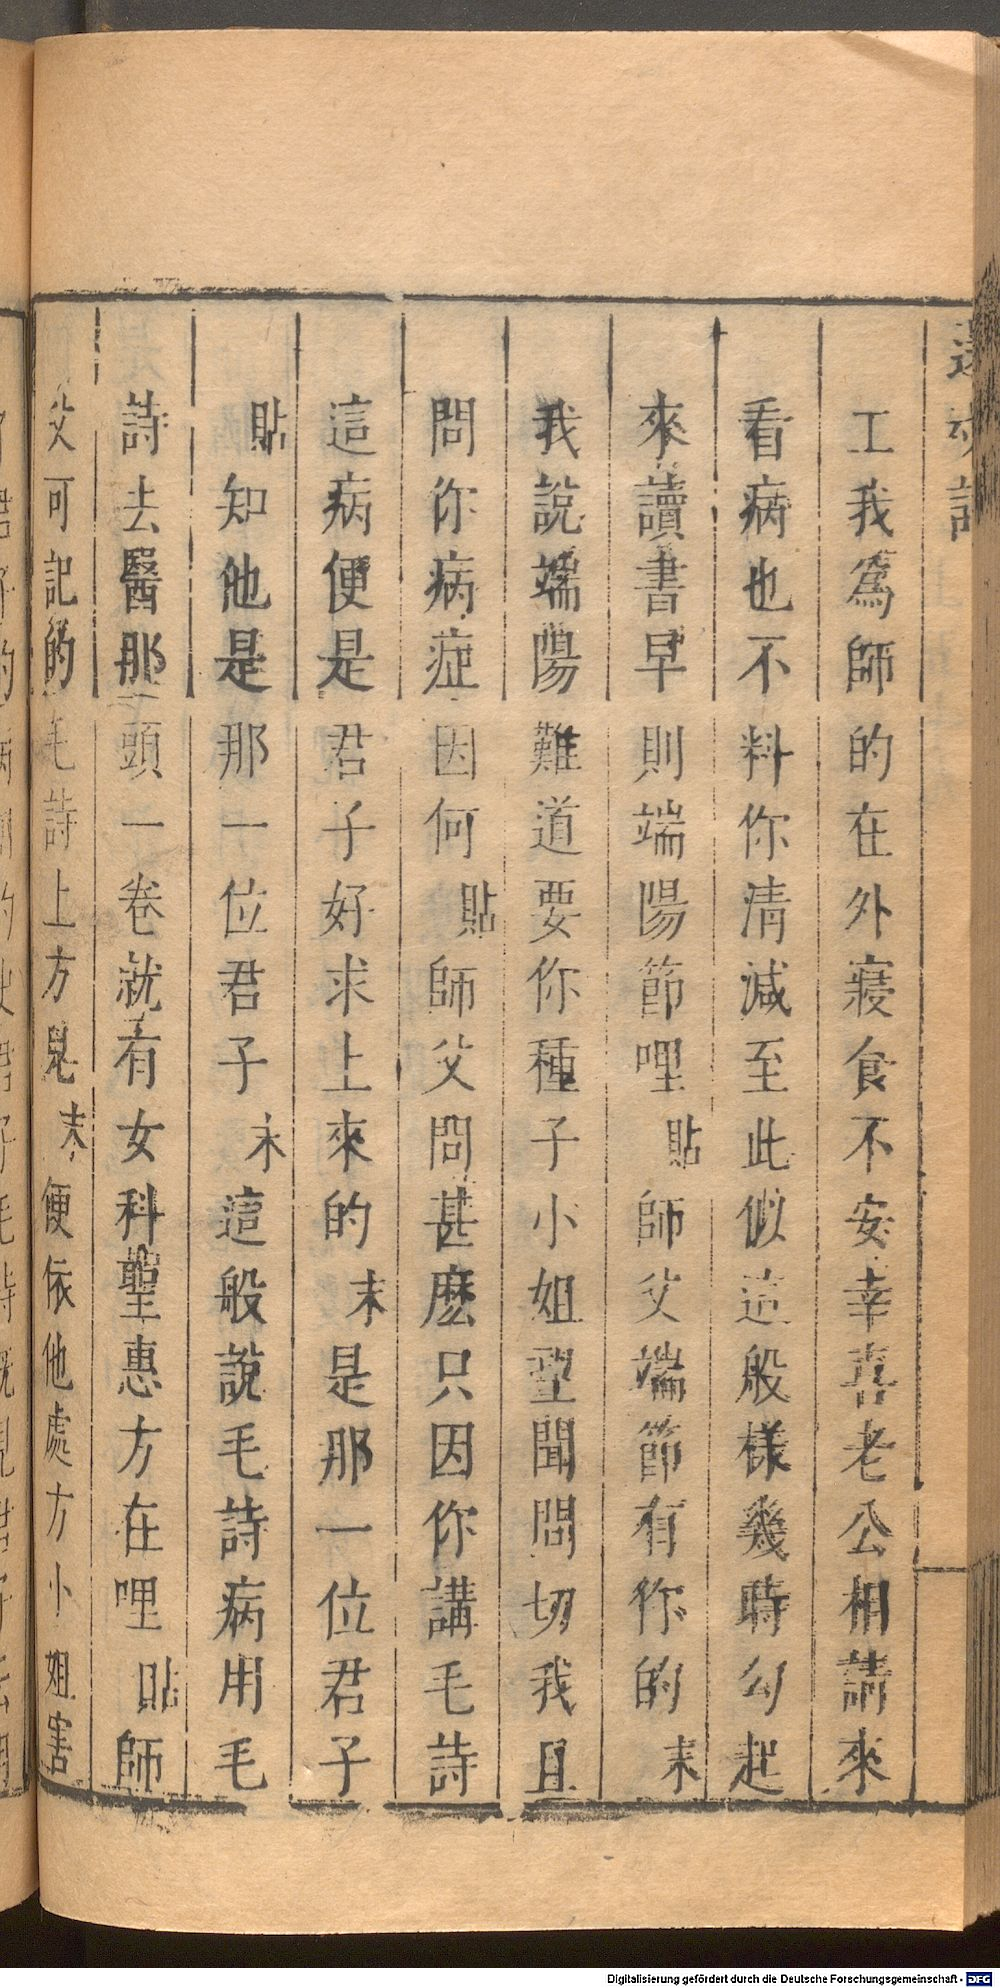 還魂記
工我爲師的在外寢食不安幸喜老公相請來
看病也不料你清減至此似這般樣幾時勾起
來讀書早則端陽節哩貼師父端節有你的末
我說端陽難道要你糉子小姐望聞問切我且
問你病症因何貼師父問甚麽只因你講毛詩
這病便是君子好求上來的末是那一位君子
貼知他是那一位君子末這般說毛詩病用毛
詩去醫那頭一卷就有女科聖惠方在哩貼師
父可記的毛詩上方兒末便依他處方小姐害
Digitalisierung gefördert durch die Deutsche Forschungsgemeinschaft - DFG